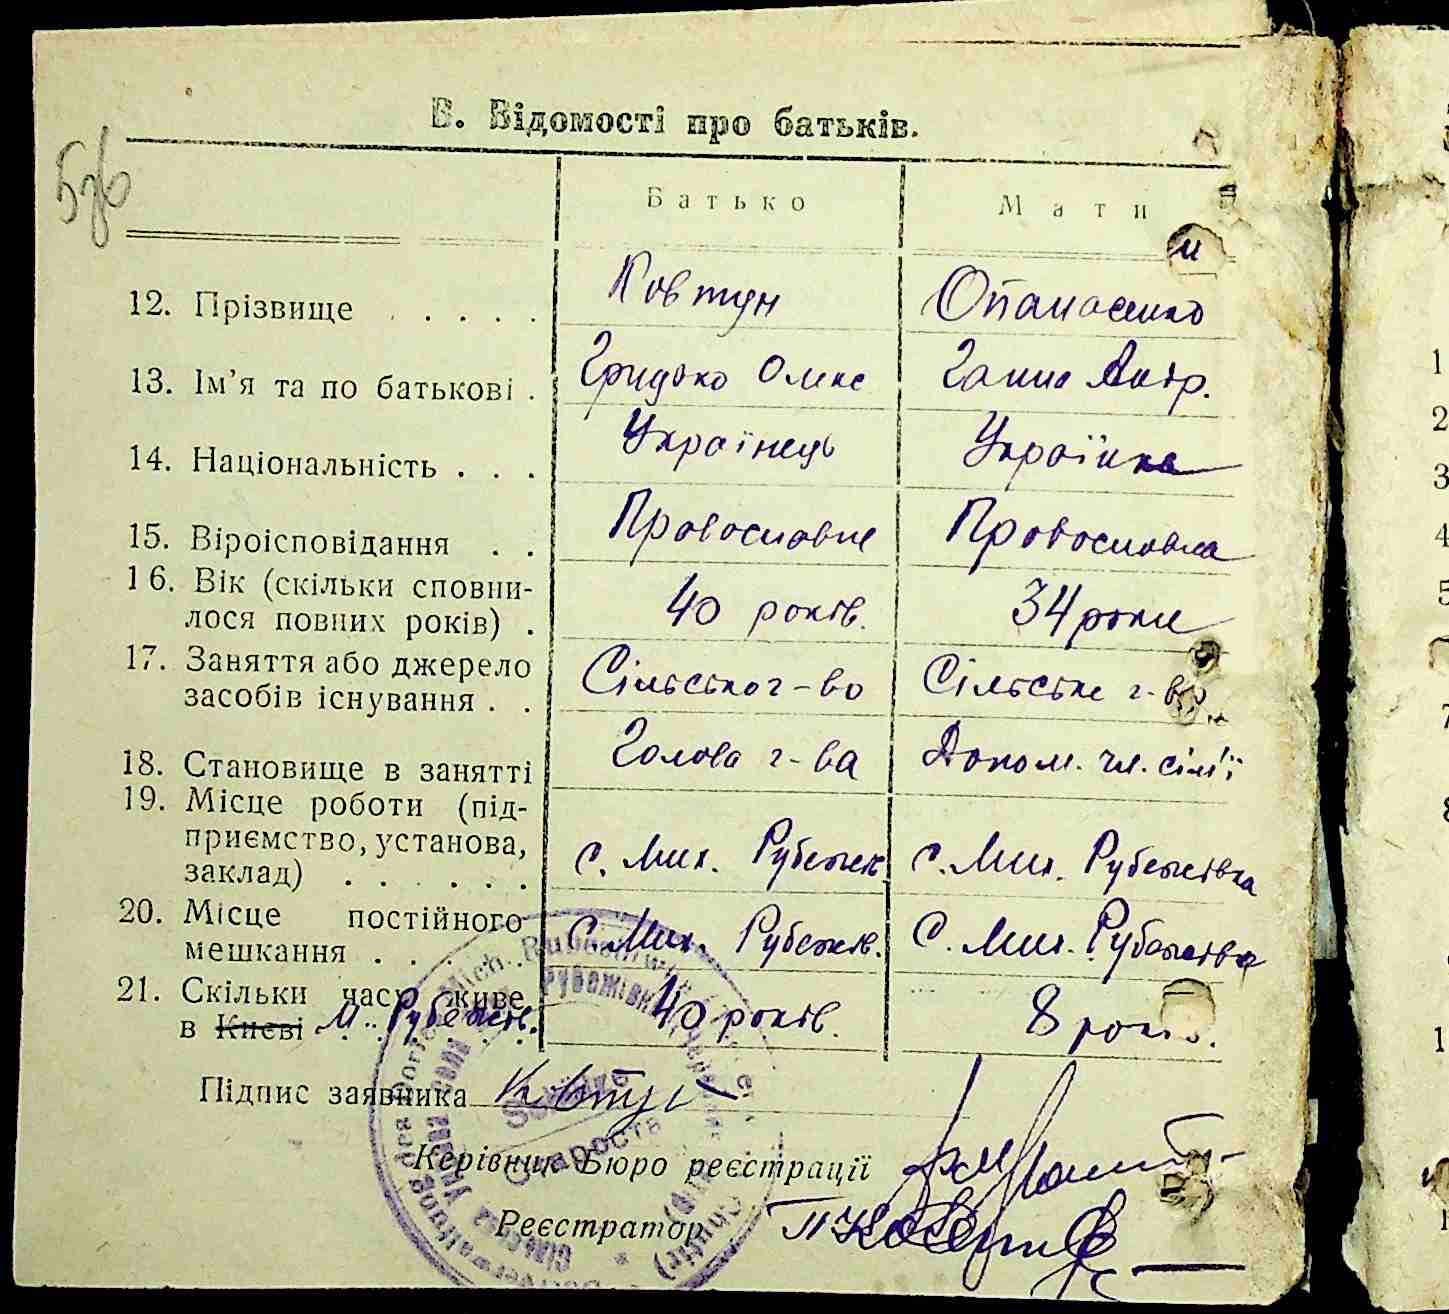 В. Відомості про батьків.
Батько Мати
12. Прізвище . . . . . Ковтун Опанасенко
13. Ім'я та по батькові . Грицько Олекс Ганна Антр.
14. Національність . . . Українець Українка
15. Віроісповідання . . Провославне Провославна
16. Вік (скільки сповни-
лося повних років) . 40 років. 34 роки
17. Заняття або джерело
засобів існування . . Сільсько г-во Сільське г-во
18. Становище в занятті Голова г-ва Допом. чл. сім'ї
19. Місце роботи (під-
приємство, установа,
заклад) . . . . . . с. Мих. Рубежів с. Мих. Рубежівка
20. Місце постійного
мешкання . . . . . с. Мих. Рубежів. с. Мих. Рубежівка
21. Скільки часу живе
в Києві М. Рубежів. 40 років. 8 років.
Підпис заявника Ковтун
Керівник Бюро реєстрації
Реєстратор